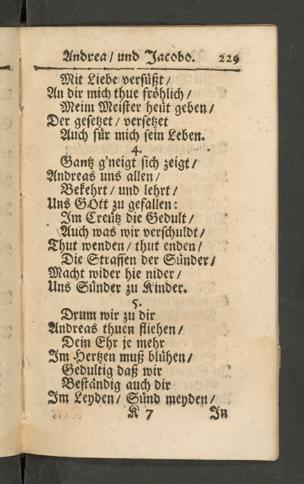 Andrea/ und Jacobo. 229
Mit Liebe versüßt/
An dir mich thue fröhlich/
Meim Meister heüt geben/
Der gesetzet/ versetzet
Auch für mich sein Leben.
4.
Gantz g'neigt sich zeigt/
Andreas uns allen/
Bekehrt/ und lehrt/
Uns GOtt zu gefallen:
Im Creütz die Gedult/
Auch was wir verschuldt/
Thut wenden/ thut enden/
Die Straffen der Sünder/
Macht wider hie nider/
Uns Sünder zu Kinder.
5.
Drum wir zu dir
Andreas thuen fliehen/
Dein Ehr je mehr
Im Hertzen muß blühen/
Gedultig daß wir
Beständig auch dir
Im Leyden/ Sünd meyden/
K 7 In